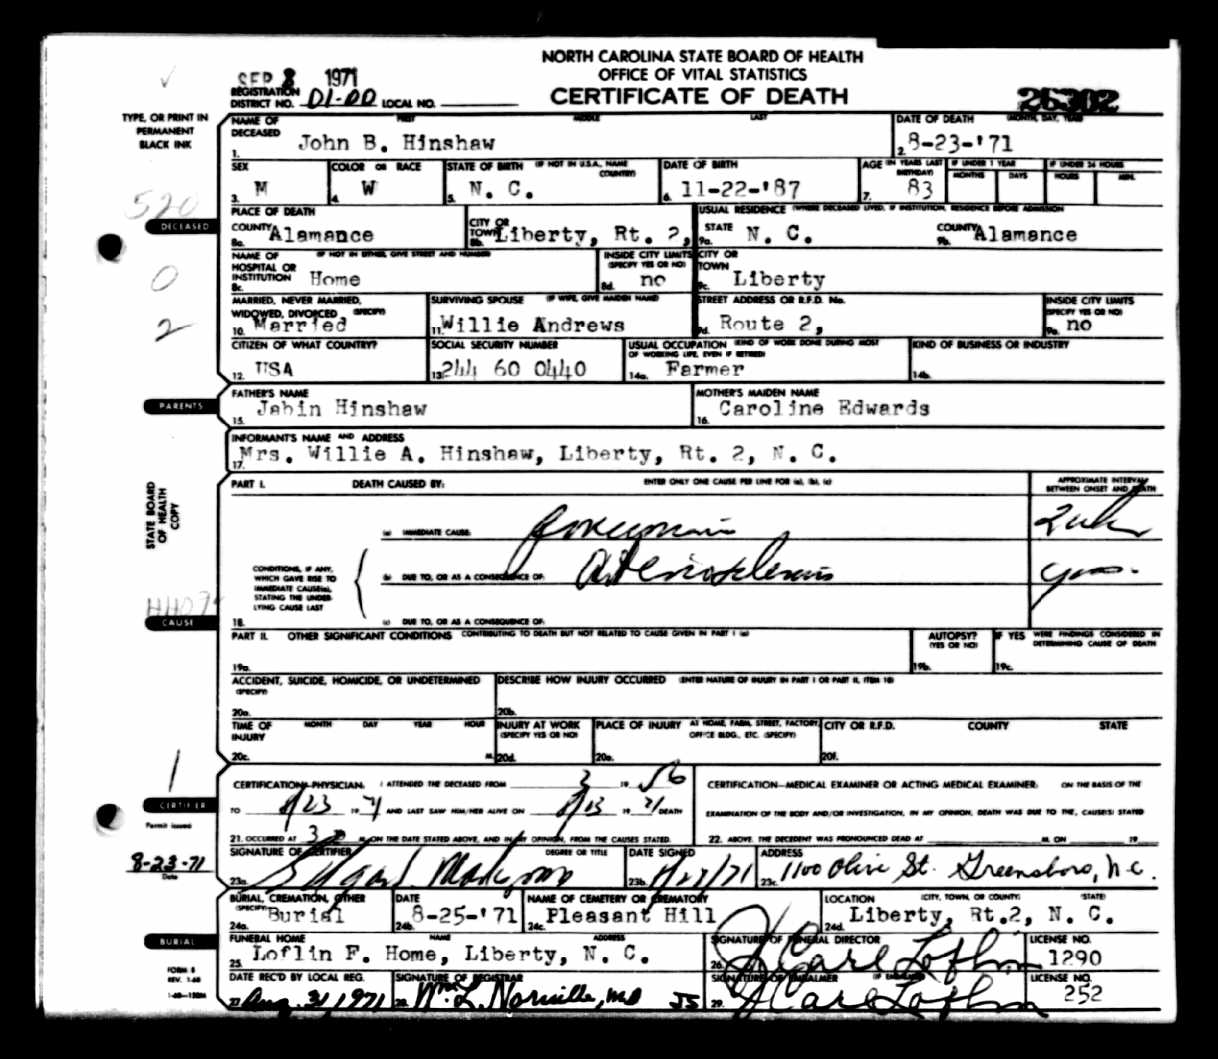 NORTH CAROLINA STATE BOARD OF HEALTH
OFFICE OF VITAL STATISTICS
CERTIFICATE OF DEATH
SEP 8 1971
REGISTRATION DISTRICT NO. 01-00 LOCAL NO.
26302
TYPE, OR PRINT IN
PERMANENT
BLACK INK
NAME OF DECEASED FIRST MIDDLE LAST
1. John B. Hinshaw
DATE OF DEATH (MONTH, DAY, YEAR)
2. 8-23-'71
SEX
3. M
COLOR OR RACE
4. W
STATE OF BIRTH (IF NOT IN U.S.A., NAME COUNTRY)
5. N. C.
DATE OF BIRTH
6. 11-22-'87
AGE (IN YEARS LAST BIRTHDAY)
7. 83
IF UNDER 1 YEAR
MONTHS DAYS
IF UNDER 24 HOURS
HOURS MIN.
520
DECEASED
PLACE OF DEATH
8a. COUNTY Alamance
8b. CITY OR TOWN Liberty, Rt. 2,
USUAL RESIDENCE (WHERE DECEASED LIVED, IF INSTITUTION, RESIDENCE BEFORE ADMISSION
9a. STATE N. C.
9b. COUNTY Alamance
0
NAME OF HOSPITAL OR INSTITUTION (IF NOT IN EITHER, GIVE STREET AND NUMBER)
8c. Home
INSIDE CITY LIMITS (SPECIFY YES OR NO)
8d. no
CITY OR TOWN
9c. Liberty
2
MARRIED, NEVER MARRIED, WIDOWED, DIVORCED (SPECIFY)
10. Married
SURVIVING SPOUSE (IF WIFE, GIVE MAIDEN NAME)
11. Willie Andrews
STREET ADDRESS OR R.F.D. No.
9d. Route 2,
INSIDE CITY LIMITS (SPECIFY YES OR NO)
9e. no
CITIZEN OF WHAT COUNTRY?
12. USA
SOCIAL SECURITY NUMBER
13. 244 60 0440
USUAL OCCUPATION (KIND OF WORK DONE DURING MOST OF WORKING LIFE, EVEN IF RETIRED)
14a. Farmer
KIND OF BUSINESS OR INDUSTRY
14b.
PARENTS
FATHER'S NAME
15. Jabin Hinshaw
MOTHER'S MAIDEN NAME
16. Caroline Edwards
INFORMANT'S NAME AND ADDRESS
17. Mrs. Willie A. Hinshaw, Liberty, Rt. 2, N. C.
STATE BOARD
OF HEALTH
COPY
PART I. DEATH CAUSED BY: ENTER ONLY ONE CAUSE PER LINE FOR (a), (b), (c)
APPROXIMATE INTERVAL BETWEEN ONSET AND DEATH
(a) IMMEDIATE CAUSE: pneumonia
(b) DUE TO, OR AS A CONSEQUENCE OF: Arteriosclerosis yrs.
CONDITIONS, IF ANY,
WHICH GAVE RISE TO
IMMEDIATE CAUSE(a),
STATING THE UNDER-
LYING CAUSE LAST
CAUSE
18. (c) DUE TO, OR AS A CONSEQUENCE OF:
PART II. OTHER SIGNIFICANT CONDITIONS CONTRIBUTING TO DEATH BUT NOT RELATED TO CAUSE GIVEN IN PART I (a)
19a.
AUTOPSY? (YES OR NO)
19b.
IF YES WERE FINDINGS CONSIDERED IN DETERMINING CAUSE OF DEATH
19c.
ACCIDENT, SUICIDE, HOMICIDE, OR UNDETERMINED (SPECIFY)
20a.
DESCRIBE HOW INJURY OCCURRED (ENTER NATURE OF INJURY IN PART I OR PART II, ITEM 18)
20b.
TIME OF INJURY MONTH DAY YEAR HOUR
20c. M.
INJURY AT WORK (SPECIFY YES OR NO)
20d.
PLACE OF INJURY AT HOME, FARM, STREET, FACTORY, OFFICE BLDG., ETC. (SPECIFY)
20e.
CITY OR R.F.D. COUNTY STATE
20f.
CERTIFIER
CERTIFICATION: PHYSICIAN. I ATTENDED THE DECEASED FROM 3 19 56
TO 8/23 19 71 AND LAST SAW HIM/HER ALIVE ON 8/13 19 71 DEATH
21. OCCURRED AT M. ON THE DATE STATED ABOVE, AND IN MY OPINION, FROM THE CAUSES STATED.
CERTIFICATION—MEDICAL EXAMINER OR ACTING MEDICAL EXAMINER: ON THE BASIS OF THE
EXAMINATION OF THE BODY AND/OR INVESTIGATION, IN MY OPINION, DEATH WAS DUE TO THE, CAUSE(S) STATED
22. ABOVE. THE DECEDENT WAS PRONOUNCED DEAD AT M. ON 19
Permit issued
8-23-71
Date
SIGNATURE OF CERTIFIER DEGREE OR TITLE
23a.
DATE SIGNED
23b. 8/27/71
ADDRESS
23c. 1100 Olive St. Greensboro, N.C.
BURIAL, CREMATION, OTHER (SPECIFY)
24a. Burial
DATE
24b. 8-25-'71
NAME OF CEMETERY OR CREMATORY
24c. Pleasant Hill
LOCATION (CITY, TOWN, OR COUNTY) (STATE)
24d. Liberty, Rt.2, N. C.
BURIAL
FUNERAL HOME NAME ADDRESS
25. Loflin F. Home, Liberty, N. C.
SIGNATURE OF FUNERAL DIRECTOR
26. J Carl Loflin
LICENSE NO.
1290
FORM 8
REV. 1-68
DATE REC'D BY LOCAL REG.
27. Aug. 31, 1971
SIGNATURE OF REGISTRAR
28. Wm. L. Norville, MD JS
SIGNATURE OF EMBALMER (IF EMBALMED)
29. J Carl Loflin
LICENSE NO.
252